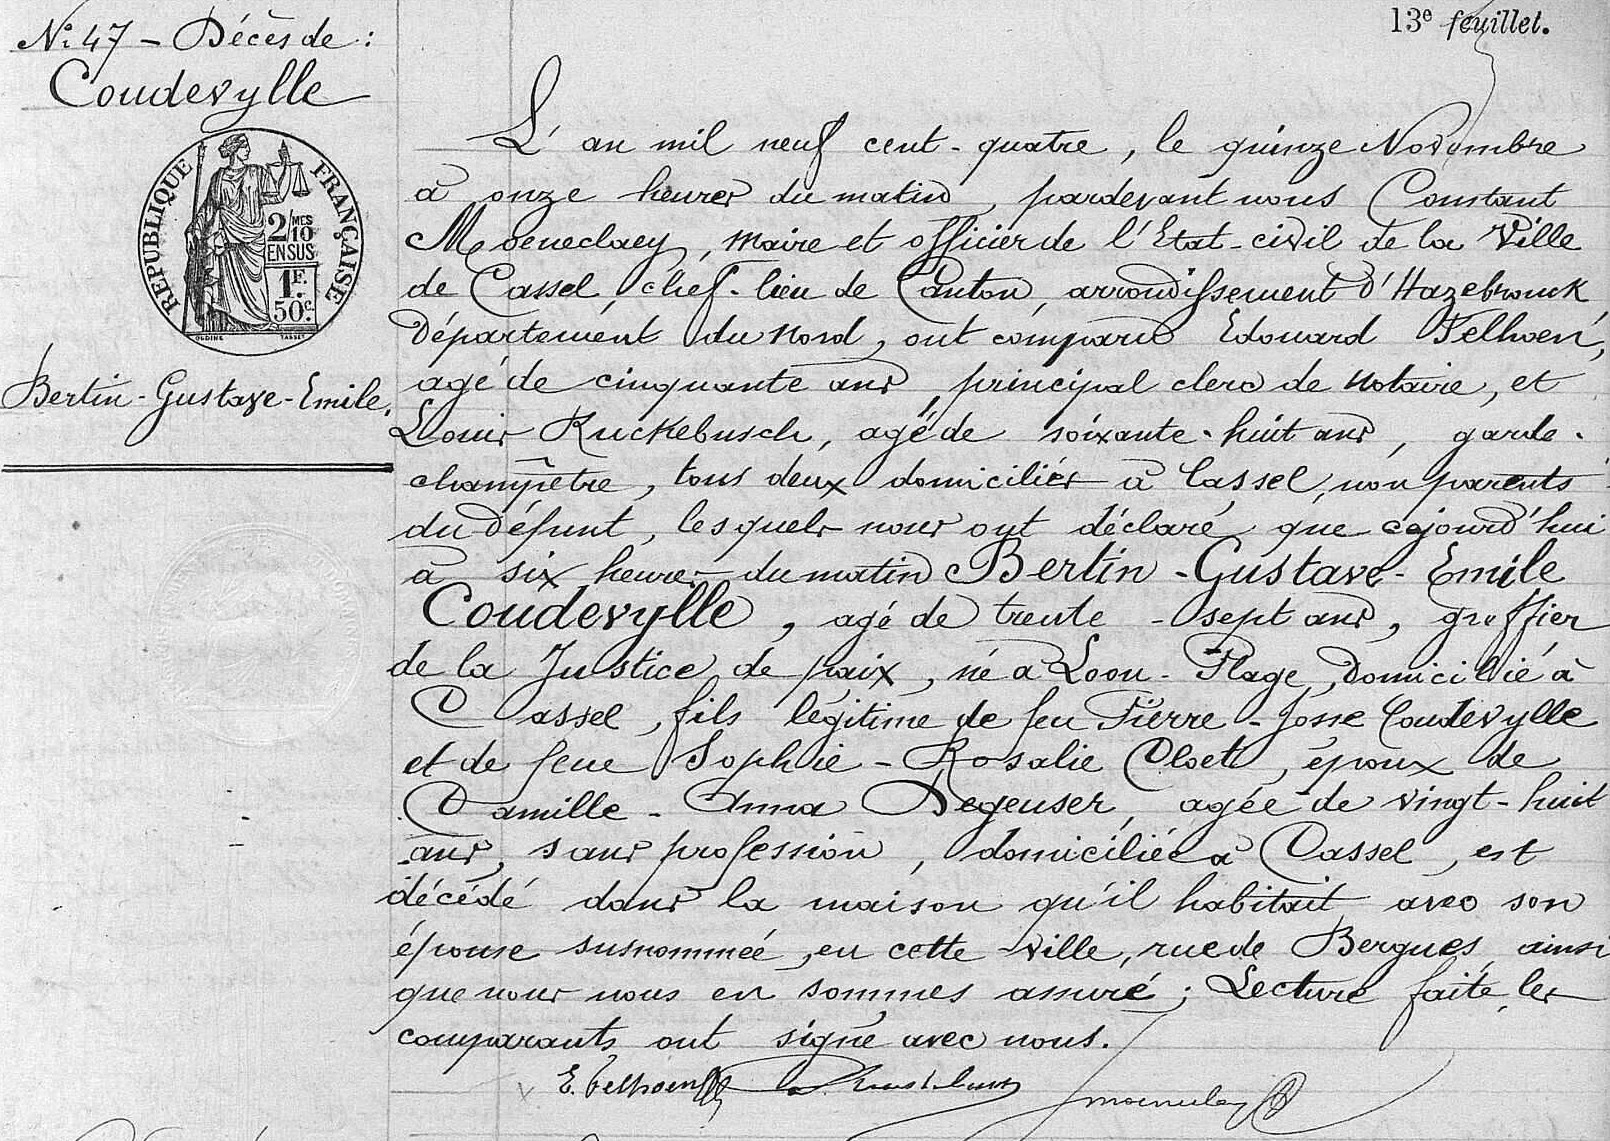 13e feuillet.
No 47 - Décès de :
Coudevylle
RÉPUBLIQUE FRANÇAISE
2/10 MES
EN SUS
1F.
50c.
OUDINÉ TASSET
Bertin-Gustave-Emile.
L'an mil neuf cent-quatre, le quinze Novembre
à onze heures du matin, pardevant nous Constant
Moeneclaey, Maire et officier de l'Etat-civil de la Ville
de Cassel, chef-lieu de Canton, arrondissement d'Hazebrouck
Département du Nord, ont comparu Edouard Felhoen,
agé de cinquante ans, principal clerc de Notaire, et
Louis Ruckebusch, agé de soixante-huit ans, garde-
champêtre, tous deux domiciliés à Cassel, non parents
du défunt, lesquels nous ont déclaré que cejourd'hui
à six heures du matin Bertin-Gustave-Emile
Coudevylle, agé de trente-sept ans, greffier
de la Justice de paix, né à Loon-Plage, Domicilié à
Cassel, fils légitime de feu Pierre-Josse Coudevylle
et de feue Sophie-Rosalie Cloet, époux de
Camille-Anna Degeuser, agée de vingt-huit
ans, sans profession, domiciliée à Cassel, est
décédé dans la maison qu'il habitait avec son
épouse susnommée, en cette ville, rue de Bergues, ainsi
que nous nous en sommes assuré ; Lecture faite, les
comparants ont signé avec nous.